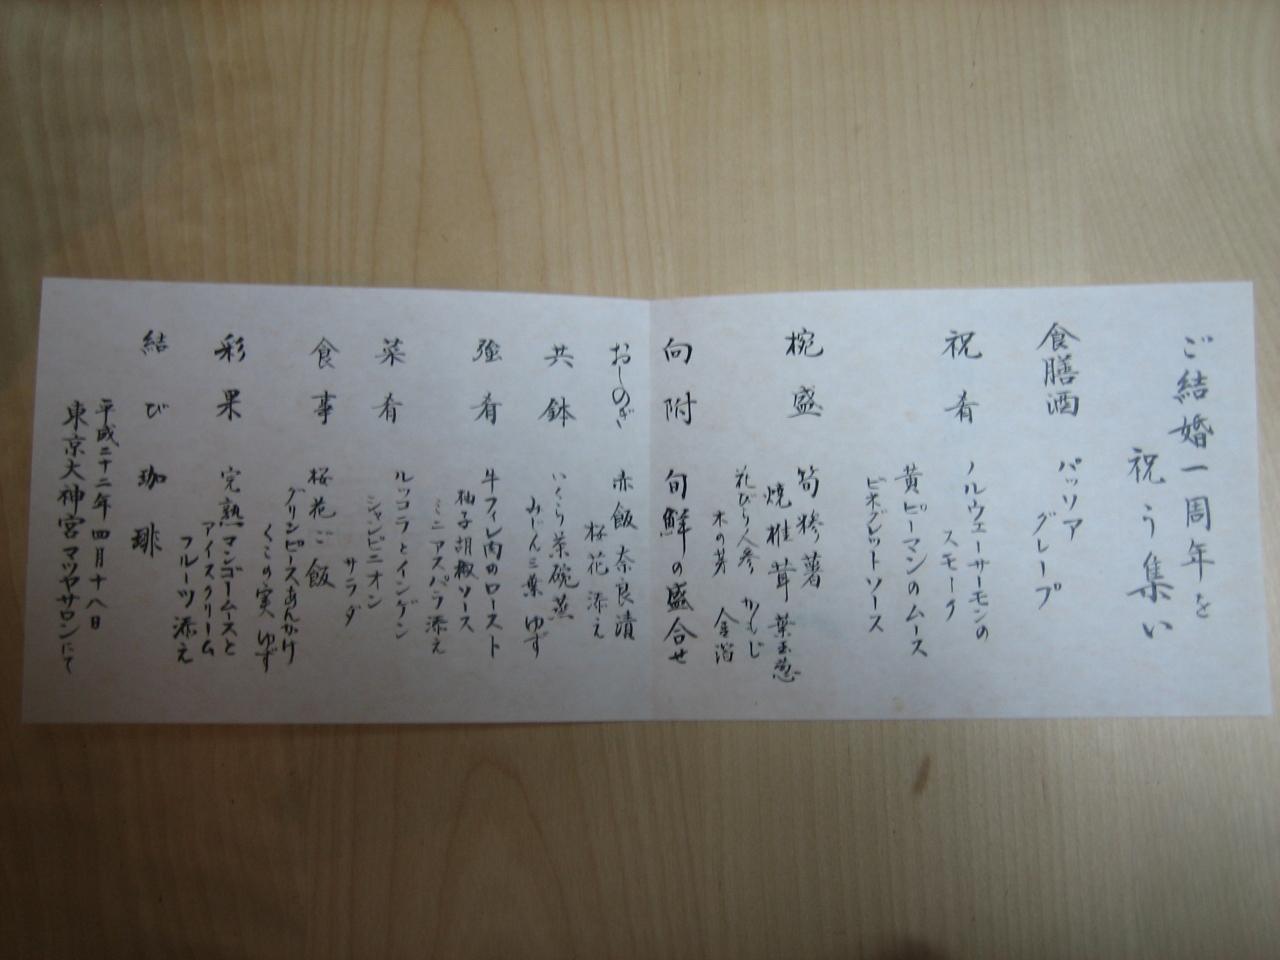 ご結婚一周年を
祝う集い
食膳酒
パッソア
グレープ
祝肴
ノルウェーサーモンの
スモーク
黄ピーマンのムース
ビネグレットソース
椀盛
筍糝薯
焼椎茸 葉玉葱
花びら人参 かもじ
木の芽 金箔
向附 旬鮮の盛合せ
おしのぎ 赤飯 奈良漬
桜花添え
共鉢
いくら茶碗蒸
みじん三葉 ゆず
強肴
牛フィレ肉のロースト
柚子胡椒ソース
ミニアスパラ添え
菜肴
ルッコラとインゲン
シャンピニオン
サラダ
食事 桜花ご飯
グリンピースあんかけ
くこの実 ゆず
彩果
完熟マンゴームースと
アイスクリーム
フルーツ添え
結び 珈琲
平成二十二年四月十八日
東京大神宮マツヤサロンにて